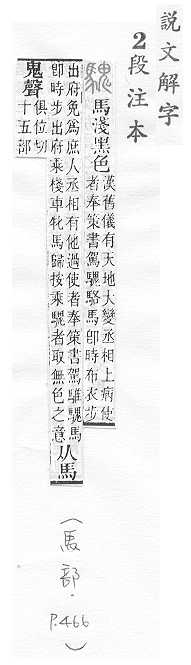 說文解字
2段注本
騩
馬淺黑色
漢舊儀有天地大變丞相上病使
者奉策書駕騩駱馬卽時布衣步
出府免爲庶人丞相有他過使者奉策書駕騅騩馬
卽時步出府乘棧車牝馬歸按乘騩者取無色之意
从馬
鬼聲
俱位切
十五部
(馬部.P.466)